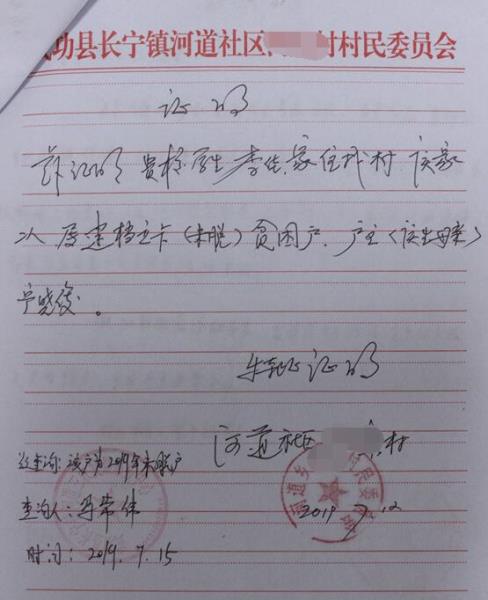 功县长宁镇河道社区 村村民委员会
证明
兹证明 贵校学生李佳,家住我村 该家
以 属建档立卡(未脱)贫困户.户主(该生母亲)
宁晓俊。
特此证明
河道社区 村
2019 7.12
经查询:该户为2019年未脱户
查询人:冯常伟
时间:2019.7.15